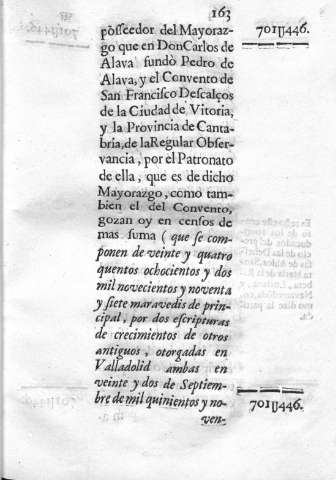 163
701U446.
posseedor del Mayoraz-
go que en Don Carlos de
Alava fundò Pedro de
Alava, y el Convento de
San Francisco Descalços
de la Ciudad de Vitoria,
y la Provincia de Canta-
bria, de la Regular Obser-
vancia, por el Patronato
de ella, que es de dicho
Mayorazgo, como tam-
bien el del Convento,
gozan oy en censos de
mas suma ( que se com-
ponen de veinte y quatro
quentos ochocientos y dos
mil novecientos y noventa
y siete maravedis de prin-
cipal, por dos escripturas
de crecimientos de otros
antiguos, otorgadas en
Valladolid ambas en
veinte y dos de Septiem-
bre de mil quinientos y no-
ven-
701U446.